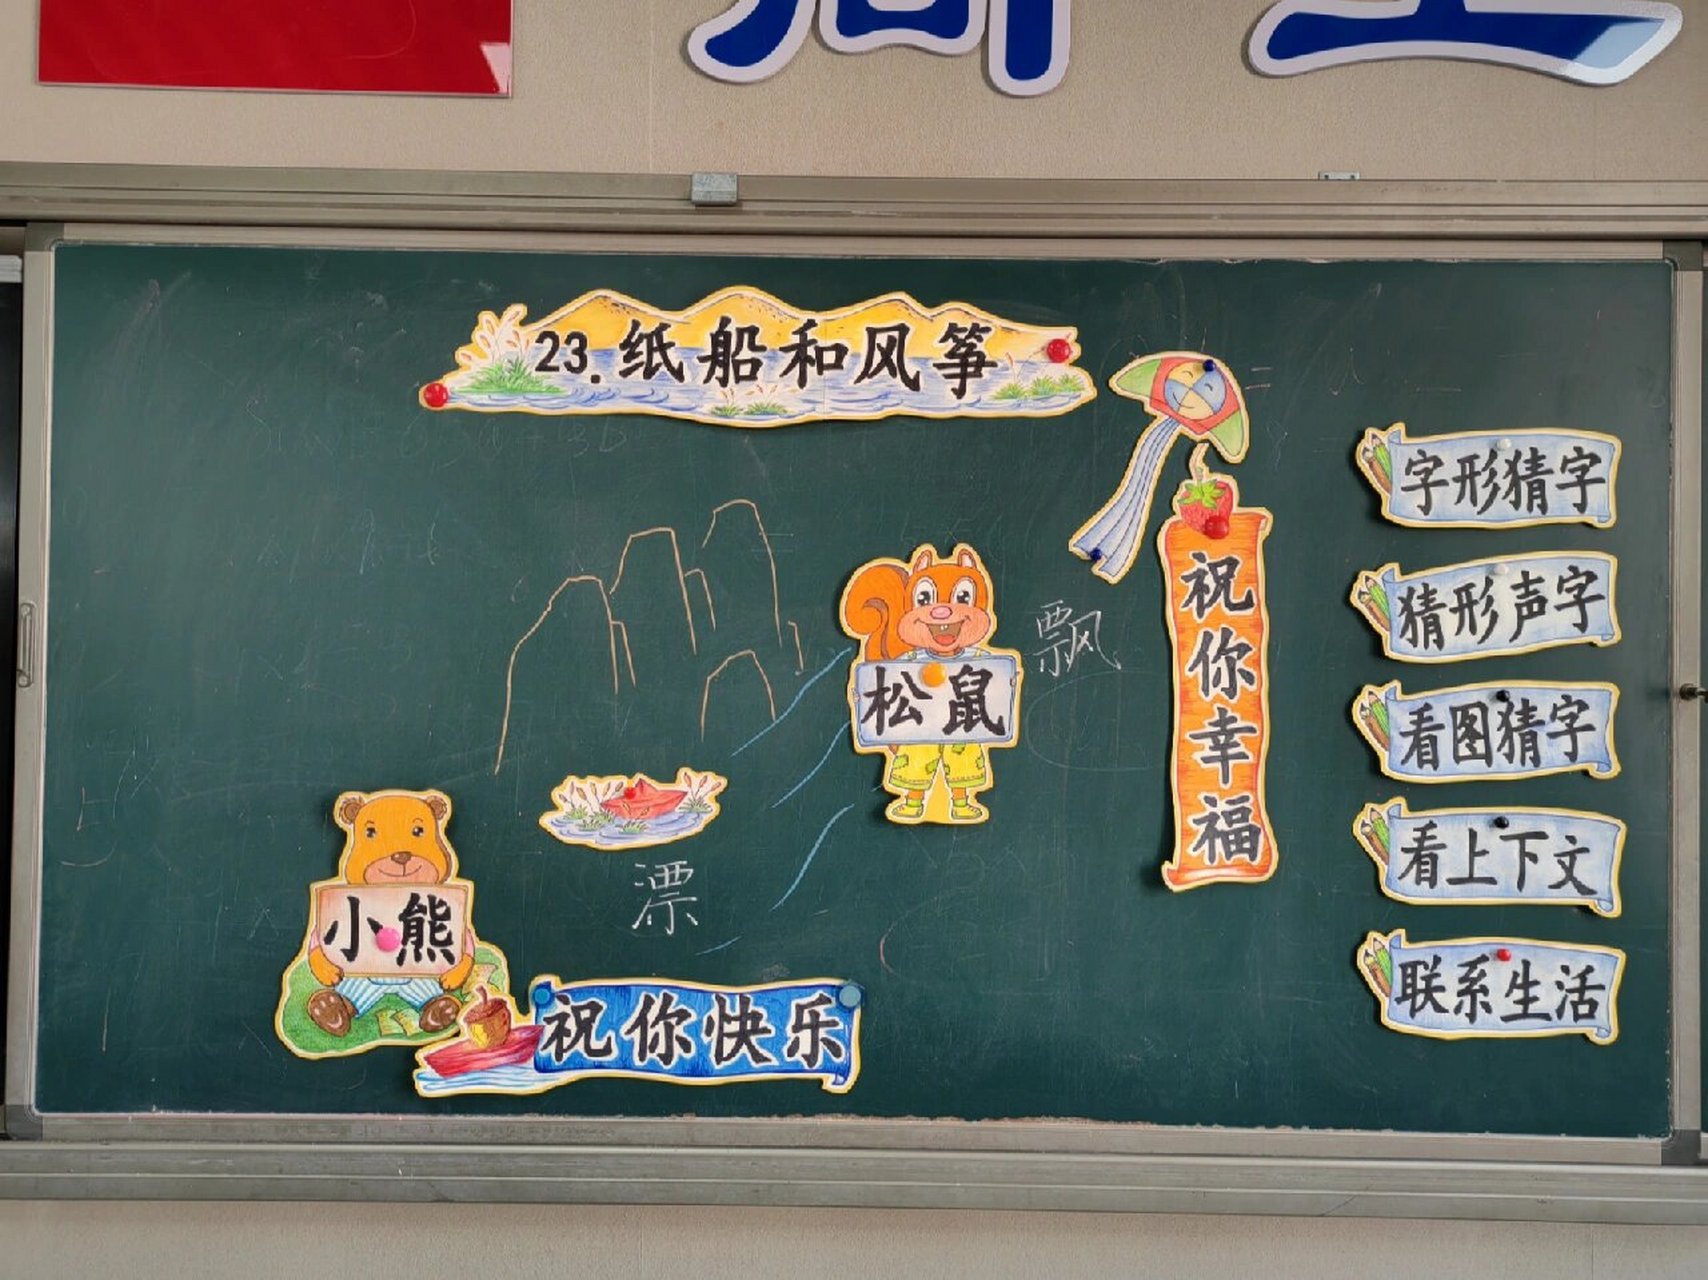 23.纸船和风筝
字形猜字
猜形声字
看图猜字
看上下文
联系生活
祝你幸福
飘
松鼠
漂
小熊
祝你快乐